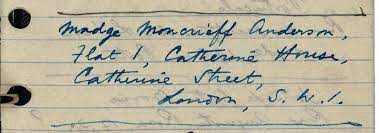 Madge Moncrieff Anderson,
Flat 1, Catherine House,
Catherine Street,
London, S.W.1.